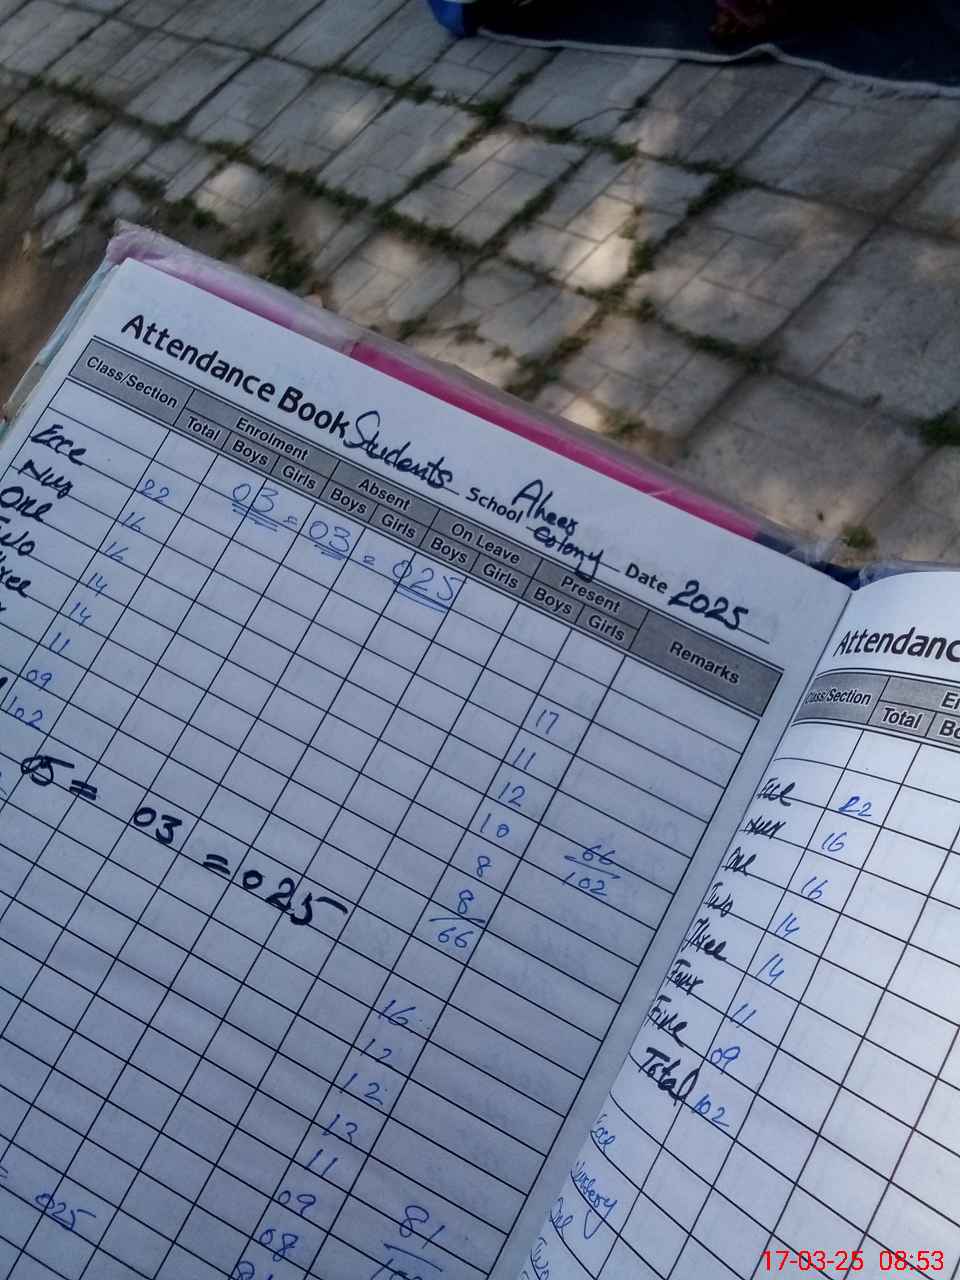 Attendance Book Students School Aheer Colony Date 2025
Class/Section Enrolment Absent On Leave Present Remarks
Total Boys Girls Boys Girls Boys Girls Boys Girls
03 = 03 = 025
Ecc 22 17
Nur 16 11
One 16 12
Two 14 10
14 8
11 8
09 66
102
66
102
05 = 03 = 025
16
12
12
13
11
09
08
81
025
Attendanc
Class/Section
Total
Ecce 22
Nur 16
One 16
Two 14
Three 14
Four 11
Five 09
Total 102
Nursery
One
Two
17-03-25 08:53